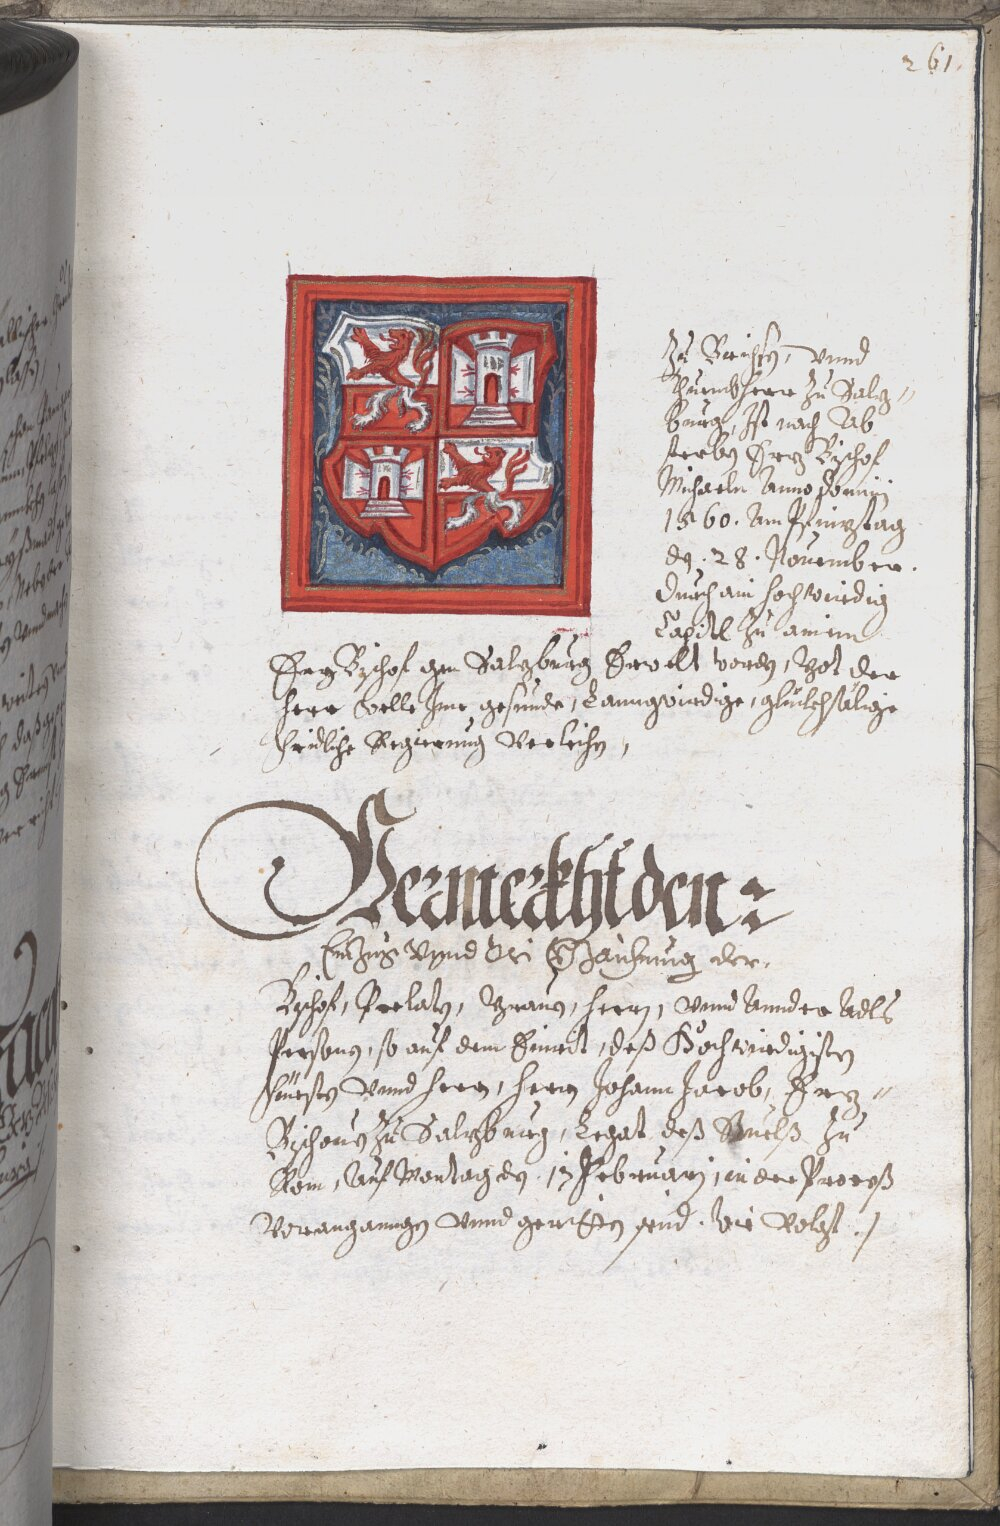 261.
Zu Brixen, vnnd
Thuembherr zu Saltz„
burg, Ist nach Ab
sterben Ertz Bischof
Michaeln Anno Dominj
1560. Am Pfintztag
den .28. Nouember.
durch ain hochwirdig
Capitl zu ainem
Ertz Bischof gen Saltzburg Erwelt worden, Got der
herr welle Ime gesunde, Lanngwirdige, glückhsälige
fridliche Regierung Verleihen,
Vermerkht den
Einzug Vnnd die Verzaichnung der.
Bischof, Prelaten, Grauen, herrn, vnnd Annder Adls
Personen, so auf dem Einrit, deß Hochwirdigisten
Fürsten vnnd herrn, herrn Johann Jacob, Ertz„
Bischouen zu Saltzburg, Legat deß Stuelß zu
Rom, Auf Montag den .17 Februarj, in der Proceß
Vorangangen vnnd geritten sind. Wie Volgt ./